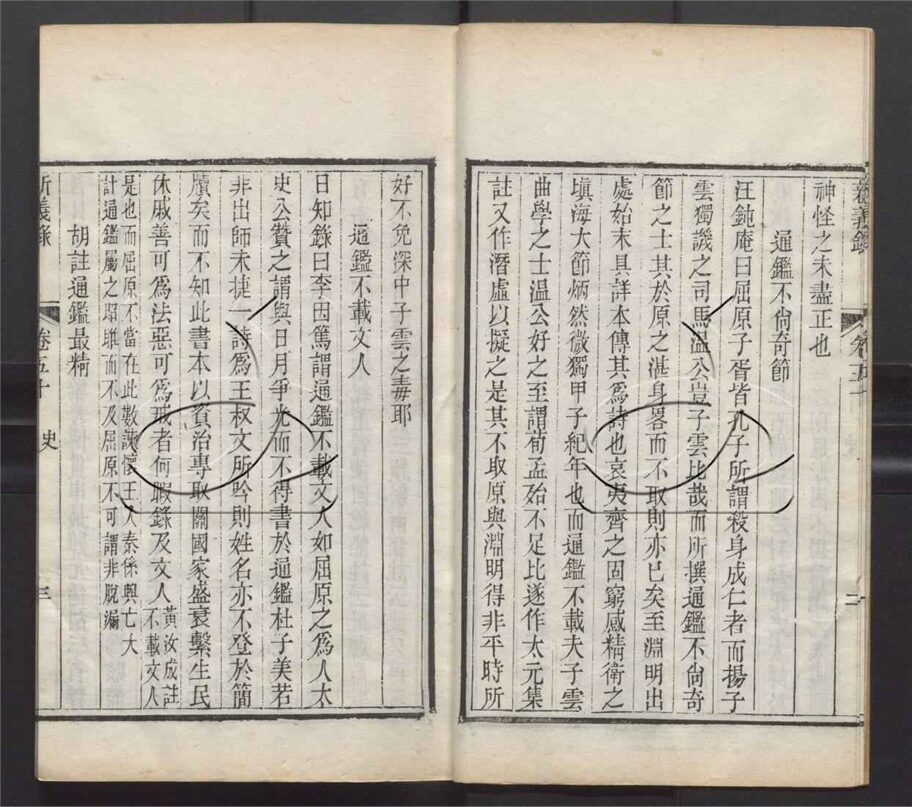 新義錄
卷五十
史
二
神怪之未盡正也
通鑑不尙奇節
汪鈍庵曰屈原子胥皆孔子所謂殺身成仁者而揚子
雲獨譏之司馬温公豈子雲比哉而所撰通鑑不尙奇
節之士其於原之湛身畧而不取則亦已矣至淵明出
處始末具詳本傳其爲詩也哀夷齊之固窮感精衛之
塡海大節炳然微獨甲子紀年也而通鑑不載夫子雲
曲學之士温公好之至謂荀孟殆不足比遂作太元集
註又作潛虛以擬之是其不取原與淵明得非平時所
好不免深中子雲之毒耶
通鑑不載文人
日知錄曰李因篤謂通鑑不載文人如屈原之爲人太
史公贊之謂與日月爭光而不得書於通鑑杜子美若
非出師未捷一詩爲王叔文所吟則姓名亦不登於簡
牘矣而不知此書本以資治專取關國家盛衰繫生民
休戚善可爲法惡可爲戒者何暇錄及文人黃汝成註不載文人
是也而屈原不當在此數諫懷王入秦係興亡大
計通鑑屬之昭睢而不及屈原不可謂非脫漏
胡註通鑑最精
新義錄
卷五十
史
三